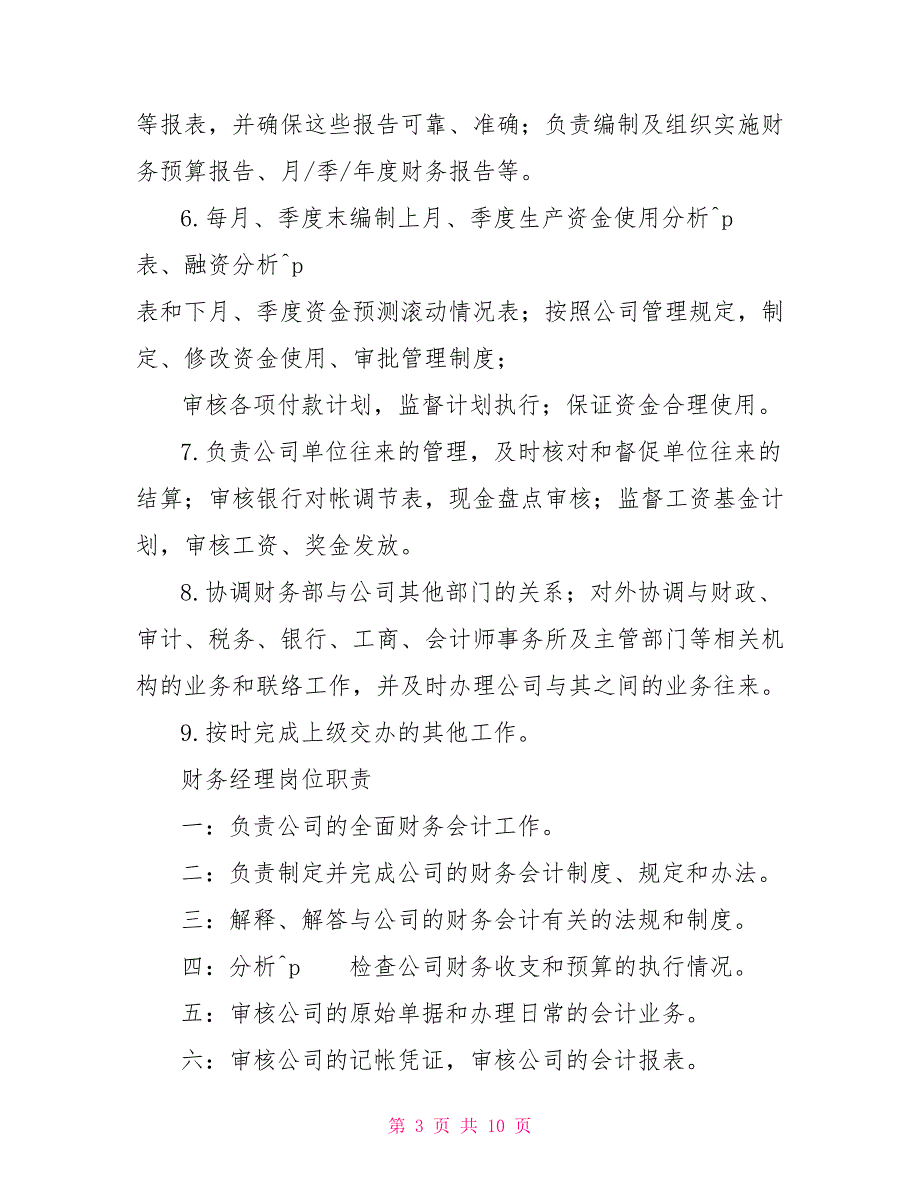 等报表，并确保这些报告可靠、准确；负责编制及组织实施财
务预算报告、月/季/年度财务报告等。
6.每月、季度末编制上月、季度生产资金使用分析^p
表、融资分析^p
表和下月、季度资金预测滚动情况表；按照公司管理规定，制
定、修改资金使用、审批管理制度；
审核各项付款计划，监督计划执行；保证资金合理使用。
7.负责公司单位往来的管理，及时核对和督促单位往来的
结算；审核银行对帐调节表，现金盘点审核；监督工资基金计
划，审核工资、奖金发放。
8.协调财务部与公司其他部门的关系；对外协调与财政、
审计、税务、银行、工商、会计师事务所及主管部门等相关机
构的业务和联络工作，并及时办理公司与其之间的业务往来。
9.按时完成上级交办的其他工作。
财务经理岗位职责
一：负责公司的全面财务会计工作。
二：负责制定并完成公司的财务会计制度、规定和办法。
三：解释、解答与公司的财务会计有关的法规和制度。
四：分析^p　　检查公司财务收支和预算的执行情况。
五：审核公司的原始单据和办理日常的会计业务。
六：审核公司的记帐凭证，审核公司的会计报表。
第 3 页 共 10 页